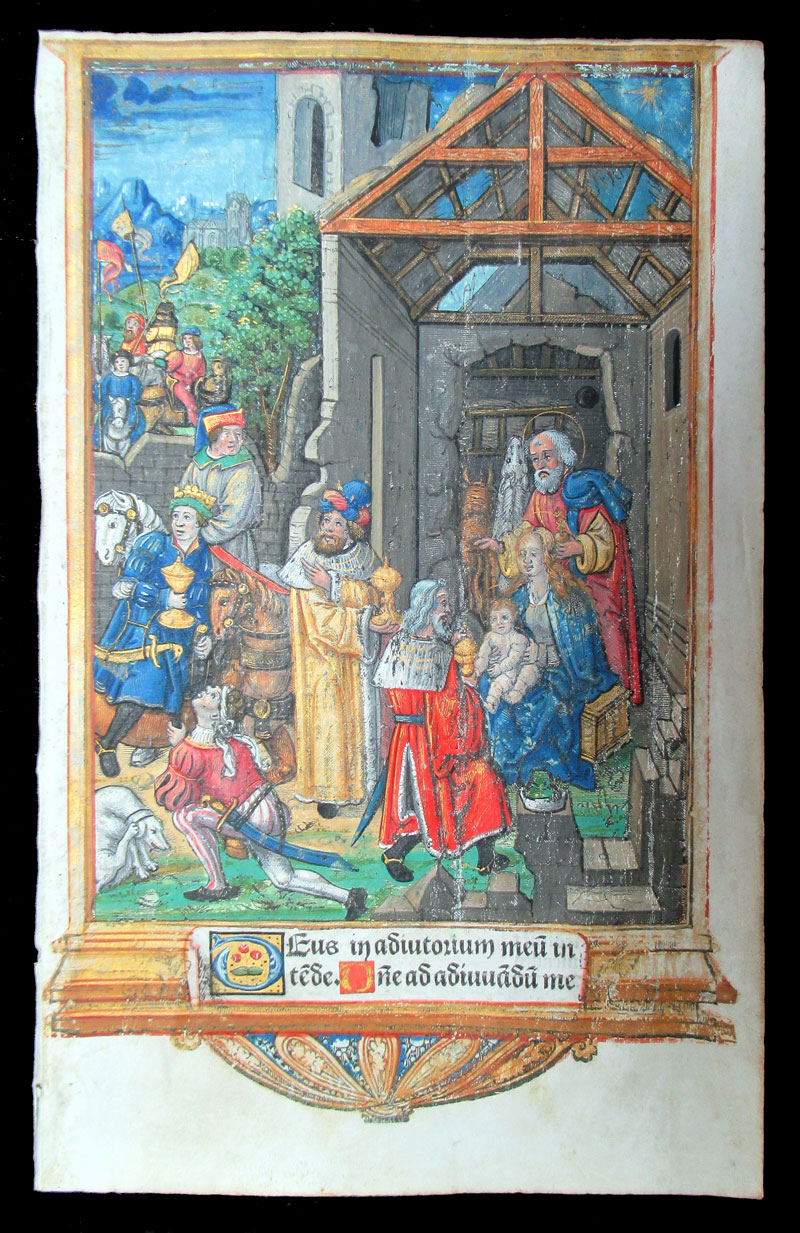 DEus in adiutorium meū in
tēde. Dn̄e ad adiuuādū me